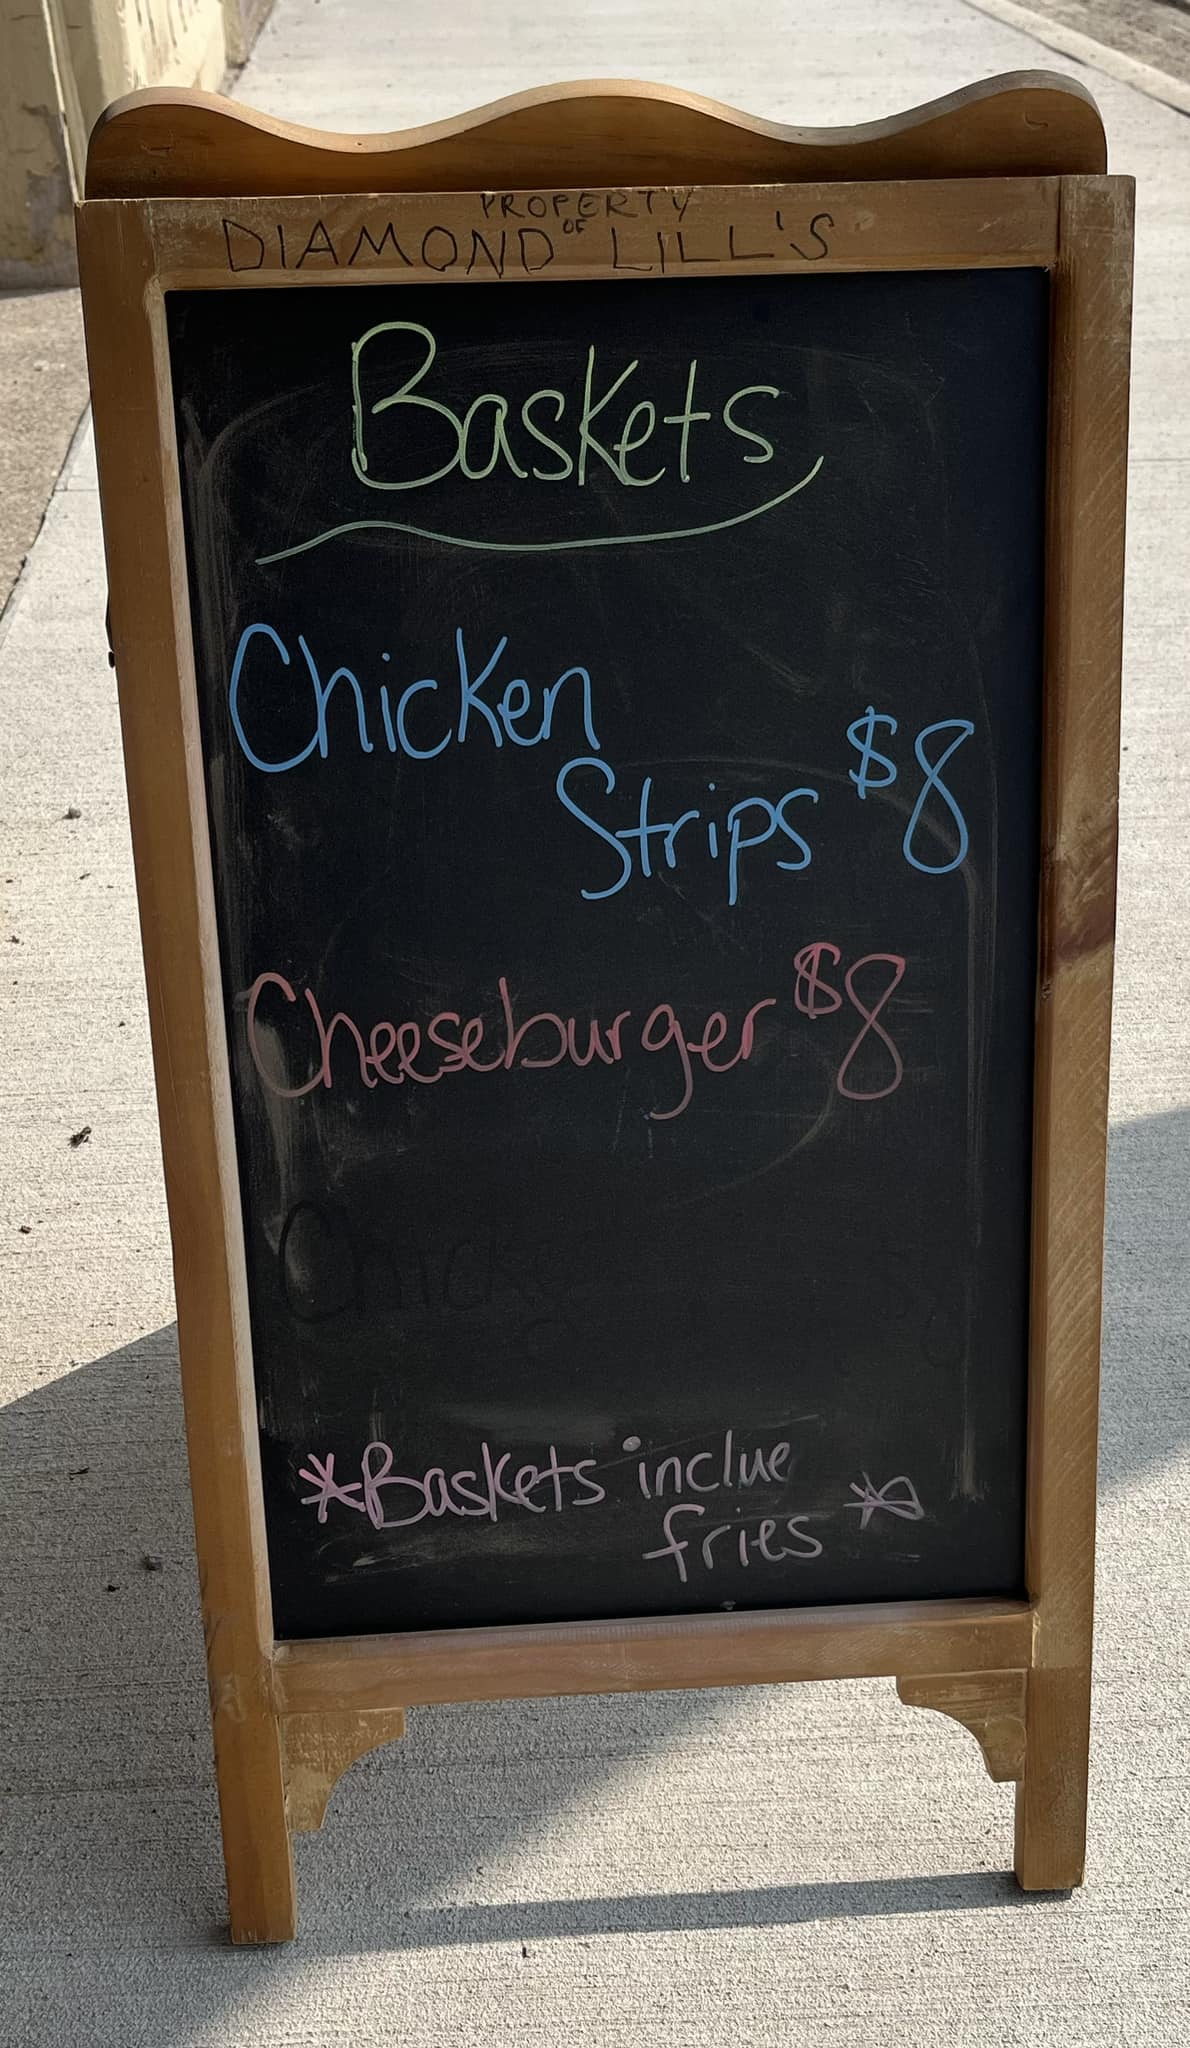 PROPERTY
OF
DIAMOND LILL'S
Baskets
Chicken
Strips $8
Cheeseburger $8
*Baskets inclue
fries *